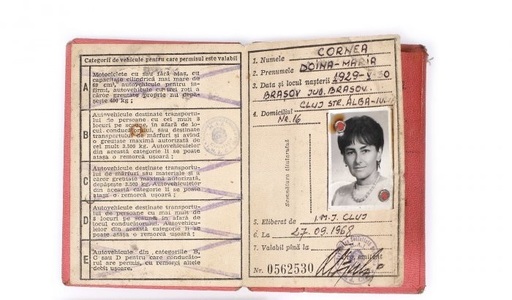 Categorii de vehicule pentru care permisul este valabil
A
Motociclete cu sau fără ataș, cu
capacitate cilindrică mai mare de
greutate proprie nu depă-
șește 400 kg ;
B
Autovehicule destinate transportu-
lui de persoane cu cel mult 8
locuri pe scaune, în afară de lo-
cul conducătorului, sau destinate
transportului de mărfuri și avînd
o greutate maximă autorizată de
cel mult 3.500 kg. Autovehiculelor
din această categorie li se poate
atașa o remorcă ușoară ;
C
Autovehicule destinate transportu-
lui de mărfuri sau materiale și a
căror greutate maximă autorizată,
depășește 3.500 kg. Autovehiculelor
din această categorie li se poate
atașa o remorcă ușoară ;
D
Autovehicule destinate transportu-
lui de persoane cu mai mult de
8 locuri pe scaune în afară de
locul conducătorului. Autovehicu-
lelor din această categorie li se poate
atașa o remorcă ușoară ;
E
Autovehicule din categoriile B,
C sau D pentru care conducăto-
rul are permis, cu remorci altele
decît ușoare.
1. Numele CORNEA
2. Prenumele DOINA-MARIA
3. Data și locul nașterii 1929
BRAȘOV JUD. BRAȘOV.
4. Domiciliul CLUJ STR. ALBA-IULIA
Nr. 16
Semnătura titularului
5. Eliberat de I.M.J. CLUJ
6. La 27.09.1968
7. Valabil pînă la
Nr. 0562530